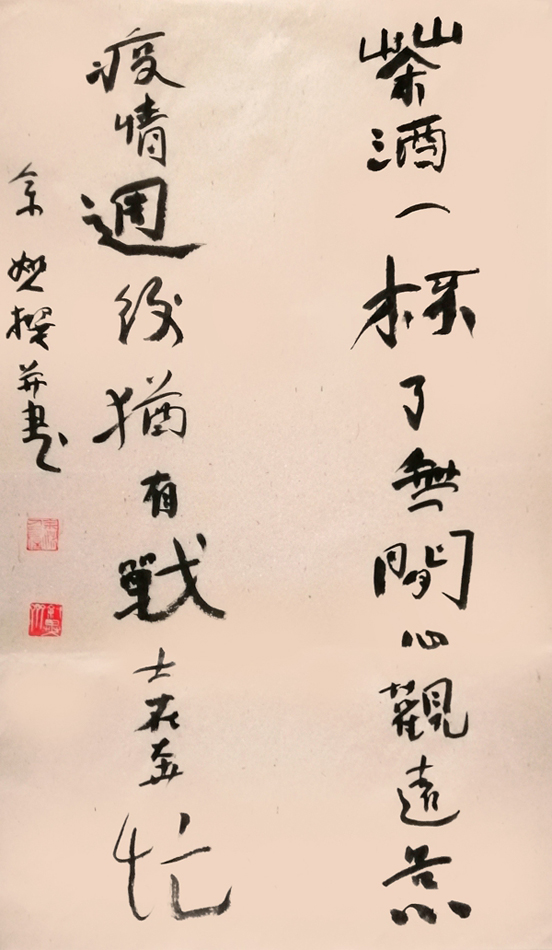 茶酒一杯了無閒心觀遠景
疫情週後猶有戰士在奔忙
余撰并書